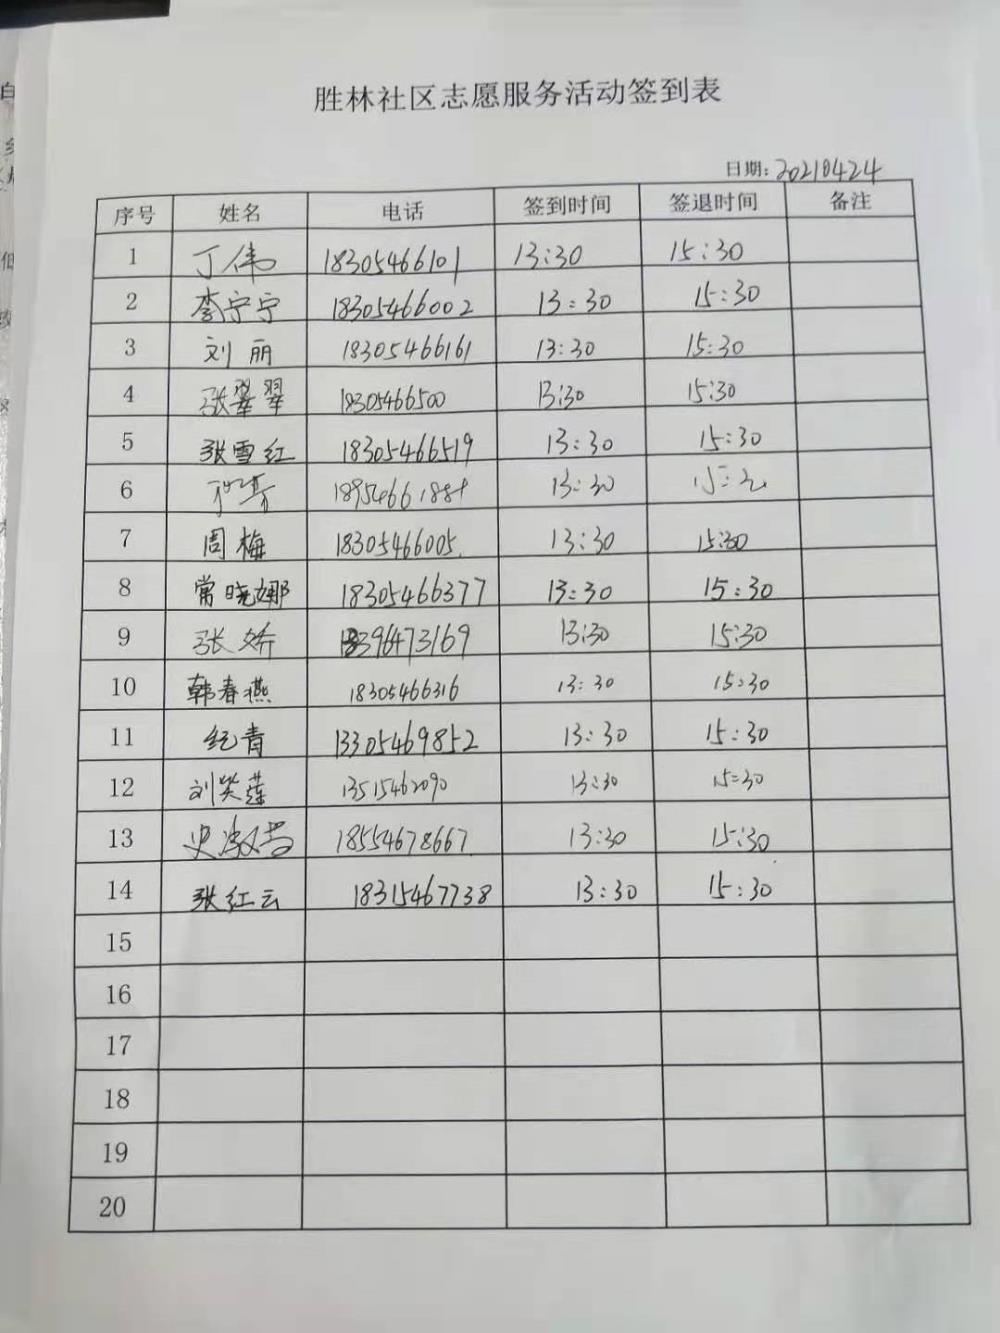 胜林社区志愿服务活动签到表
日期: 20210424
序号 姓名 电话 签到时间 签退时间 备注
1 丁伟 18305466101 13:30 15:30
2 李宁宁 18305466002 13:30 15:30
3 刘丽 18305466161 13:30 15:30
4 张翠翠 18305466500 13:30 15:30
5 张雪红 18305466519 13:30 15:30
6 13:30 15:30
7 周梅 18305466005 13:30 15:30
8 常晓娜 18305466377 13:30 15:30
9 张娇 13:30 15:30
10 韩春燕 18305466316 13:30 15:30
11 纪青 13305469852 13:30 15:30
12 刘笑莲 13515462090 13:30 15:30
13 18554678667 13:30 15:30
14 张红云 18315467738 13:30 15:30
15
16
17
18
19
20